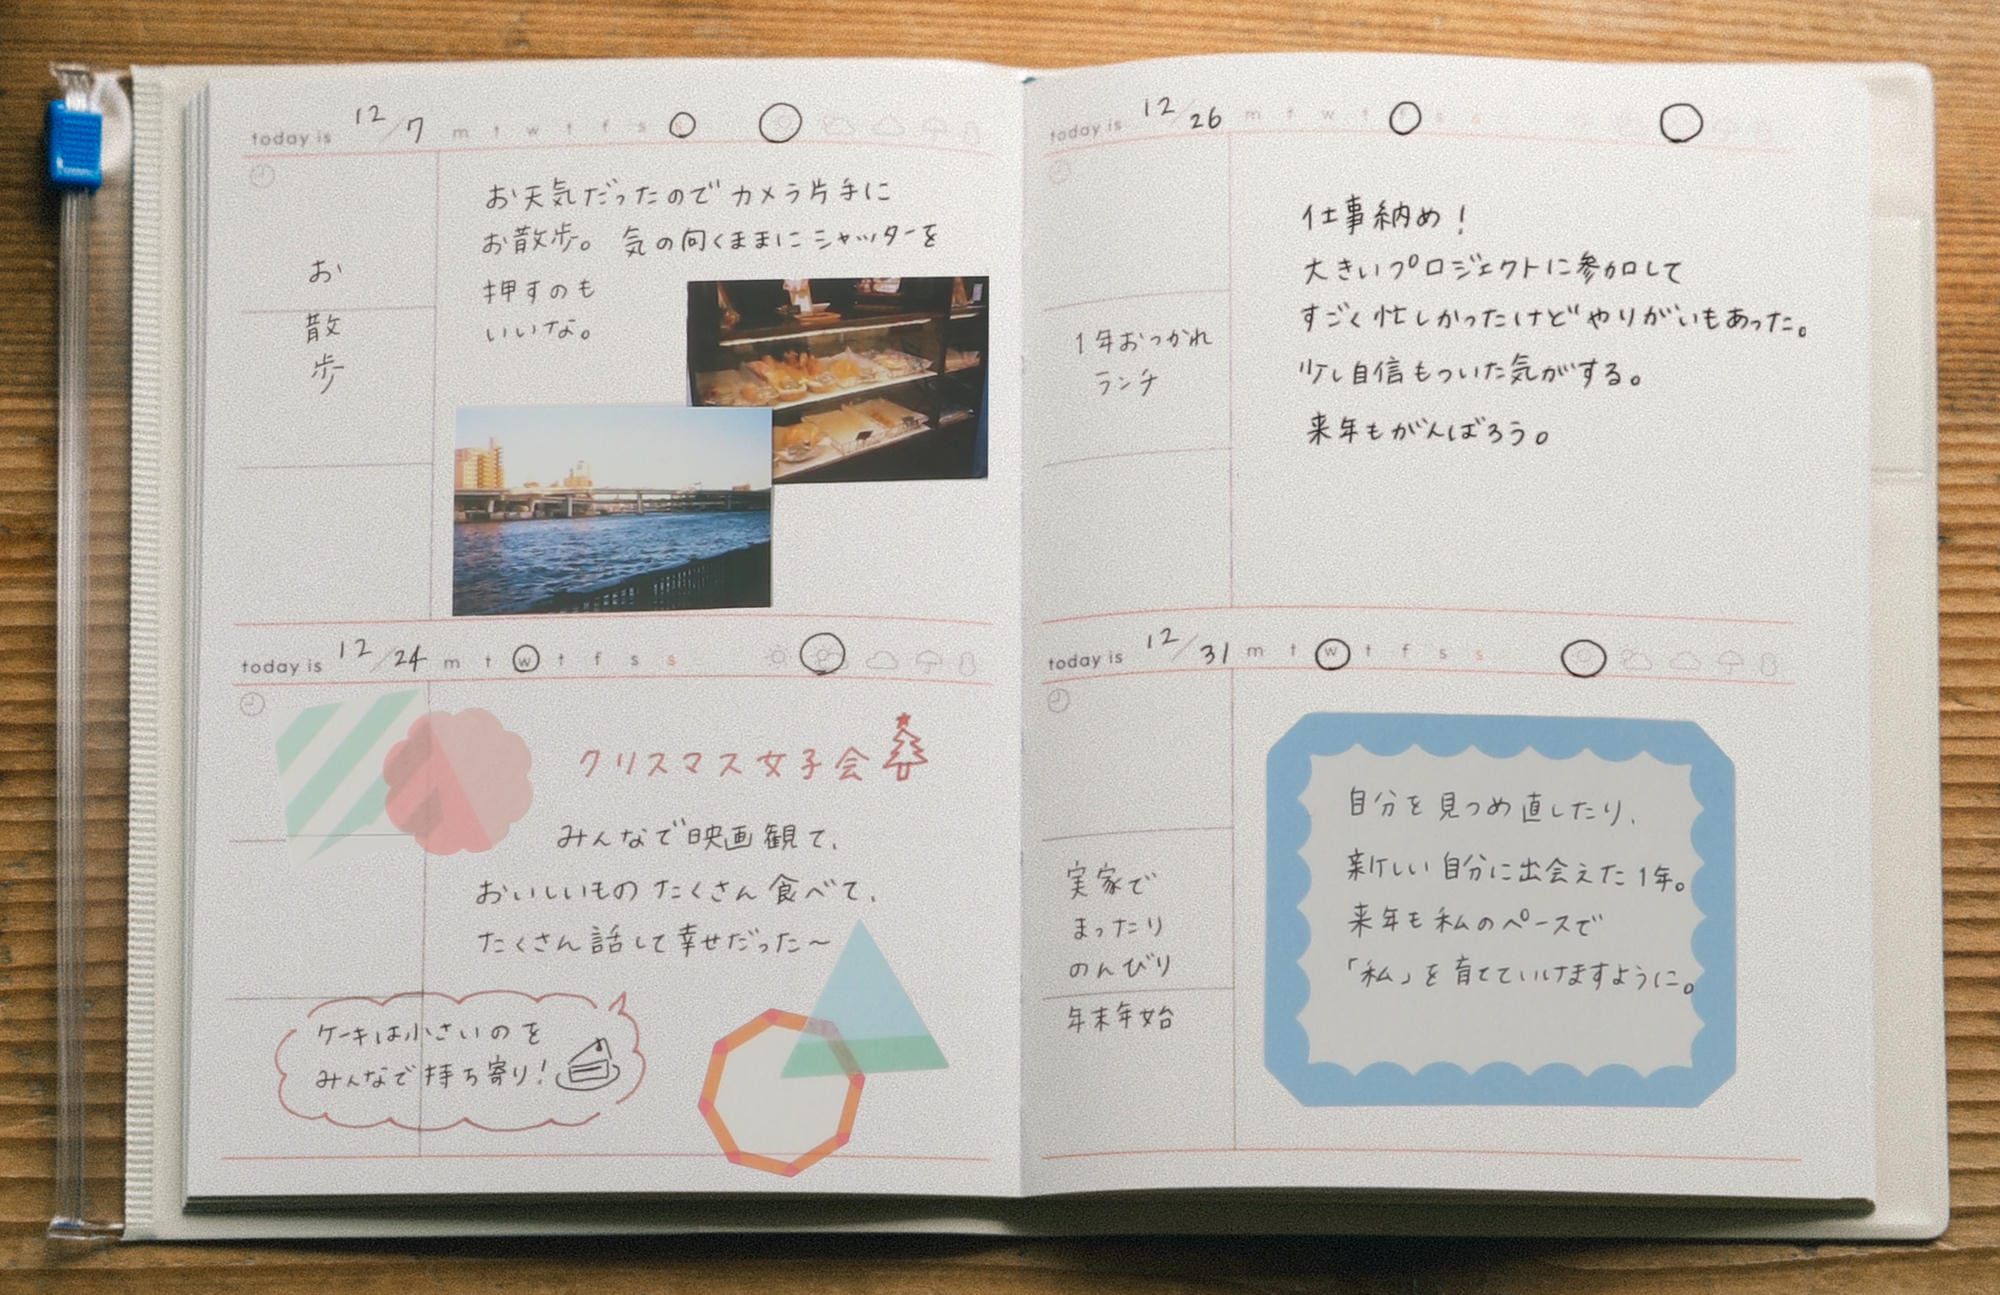 today is 12/7 m t w t f s
お散歩
お天気だったのでカメラ片手に
お散歩。気の向くままにシャッターを
押すのも
いいな。
today is 12/24 m t w t f s s
クリスマス女子会
みんなで映画観て、
おいしいものたくさん食べて、
たくさん話して幸せだった～
ケーキは小さいのを
みんなで持ち寄り!
today is 12/26 m t w t f s s
1年おつかれ
ランチ
仕事納め!
大きいプロジェクトに参加して
すごく忙しかったけどやりがいもあった。
少し自信もついた気がする。
来年もがんばろう。
today is 12/31 m t w t f s s
実家で
まったり
のんびり
年末年始
自分を見つめ直したり、
新しい自分に出会えた1年。
来年も私のペースで
「私」を育てていけますように。